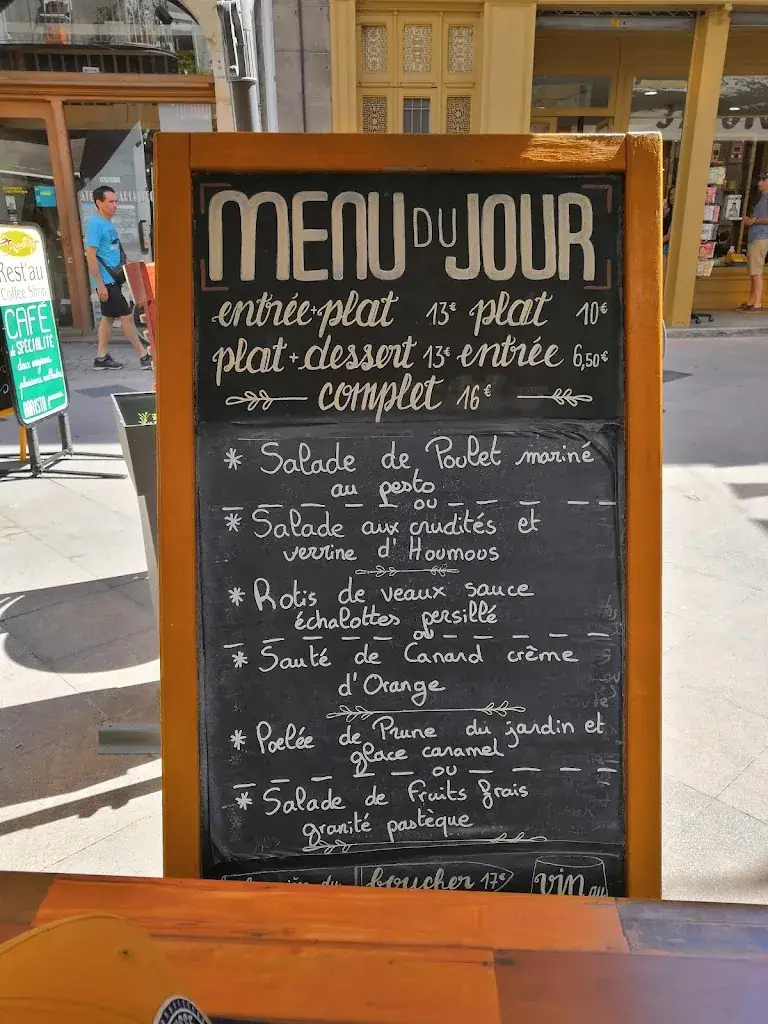 MENU DU JOUR
entrée+plat 13€ plat 10€
plat+dessert 13€ entrée 6,50€
complet 16€
* Salade de Poulet mariné
au pesto
ou
* Salade aux crudités et
verrine d'Houmous
* Rotis de veaux sauce
échalottes persillé
ou
* Sauté de Canard crème
d'Orange
* Poelée de Prune du jardin et
glace caramel
ou
* Salade de Fruits frais
granité pastèque
boucher 17€
vin au
Rest'au
Coffee Shop
CAFÉ
de SPÉCIALITÉ